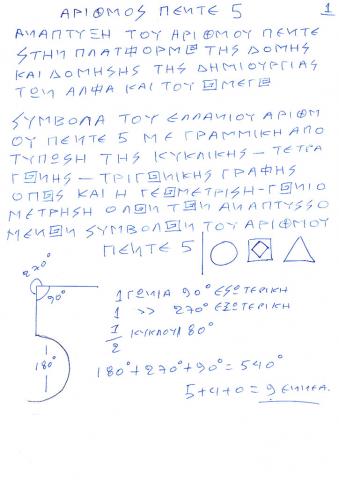 ΑΡΙΘΜΟΣ ΠΕΝΤΕ 5
1
ΑΝΑΠΤΥΞΗ ΤΟΥ ΑΡΙΘΜΟΥ ΠΕΝΤΕ
ΣΤΗΝ ΠΛΑΤΦΟΡΜΑ ΤΗΣ ΔΟΜΗΣ
ΚΑΙ ΔΟΜΗΣΗΣ ΤΗΣ ΔΗΜΙΟΥΡΓΙΑΣ
ΤΩΝ ΑΛΦΑ ΚΑΙ ΤΟΥ ΩΜΕΓΑ
ΣΥΜΒΟΛΑ ΤΟΥ ΕΛΛΑΝΙΟΥ ΑΡΙΘΜ
ΟΥ ΠΕΝΤΕ 5 ΜΕ ΓΡΑΜΜΙΚΗ ΑΠΟ
ΤΥΠΩΣΗ ΤΗΣ ΚΥΚΛΙΚΗΣ - ΤΕΤΡΑ
ΓΩΝΗΣ - ΤΡΙΓΩΝΙΚΗΣ ΓΡΑΦΗΣ
ΟΠΩΣ ΚΑΙ Η ΓΕΩΜΕΤΡΙΣΗ - ΓΩΝΙΟ
ΜΕΤΡΗΣΗ ΟΛΩΝ ΤΩΝ ΑΝΑΠΤΥΣΣΟ
ΜΕΝΩΝ ΣΥΜΒΟΛΩΝ ΤΟΥ ΑΡΙΘΜΟΥ
ΠΕΝΤΕ 5
270°
90°
180°
1 ΓΩΝΙΑ 90° ΕΣΩΤΕΡΙΚΗ
1 >> 270° ΕΞΩΤΕΡΙΚΗ
1/2 ΚΥΚΛΟΥ 180°
180° + 270° + 90° = 540°
5+4+0 = 9 ΕΝΝΕΑ.